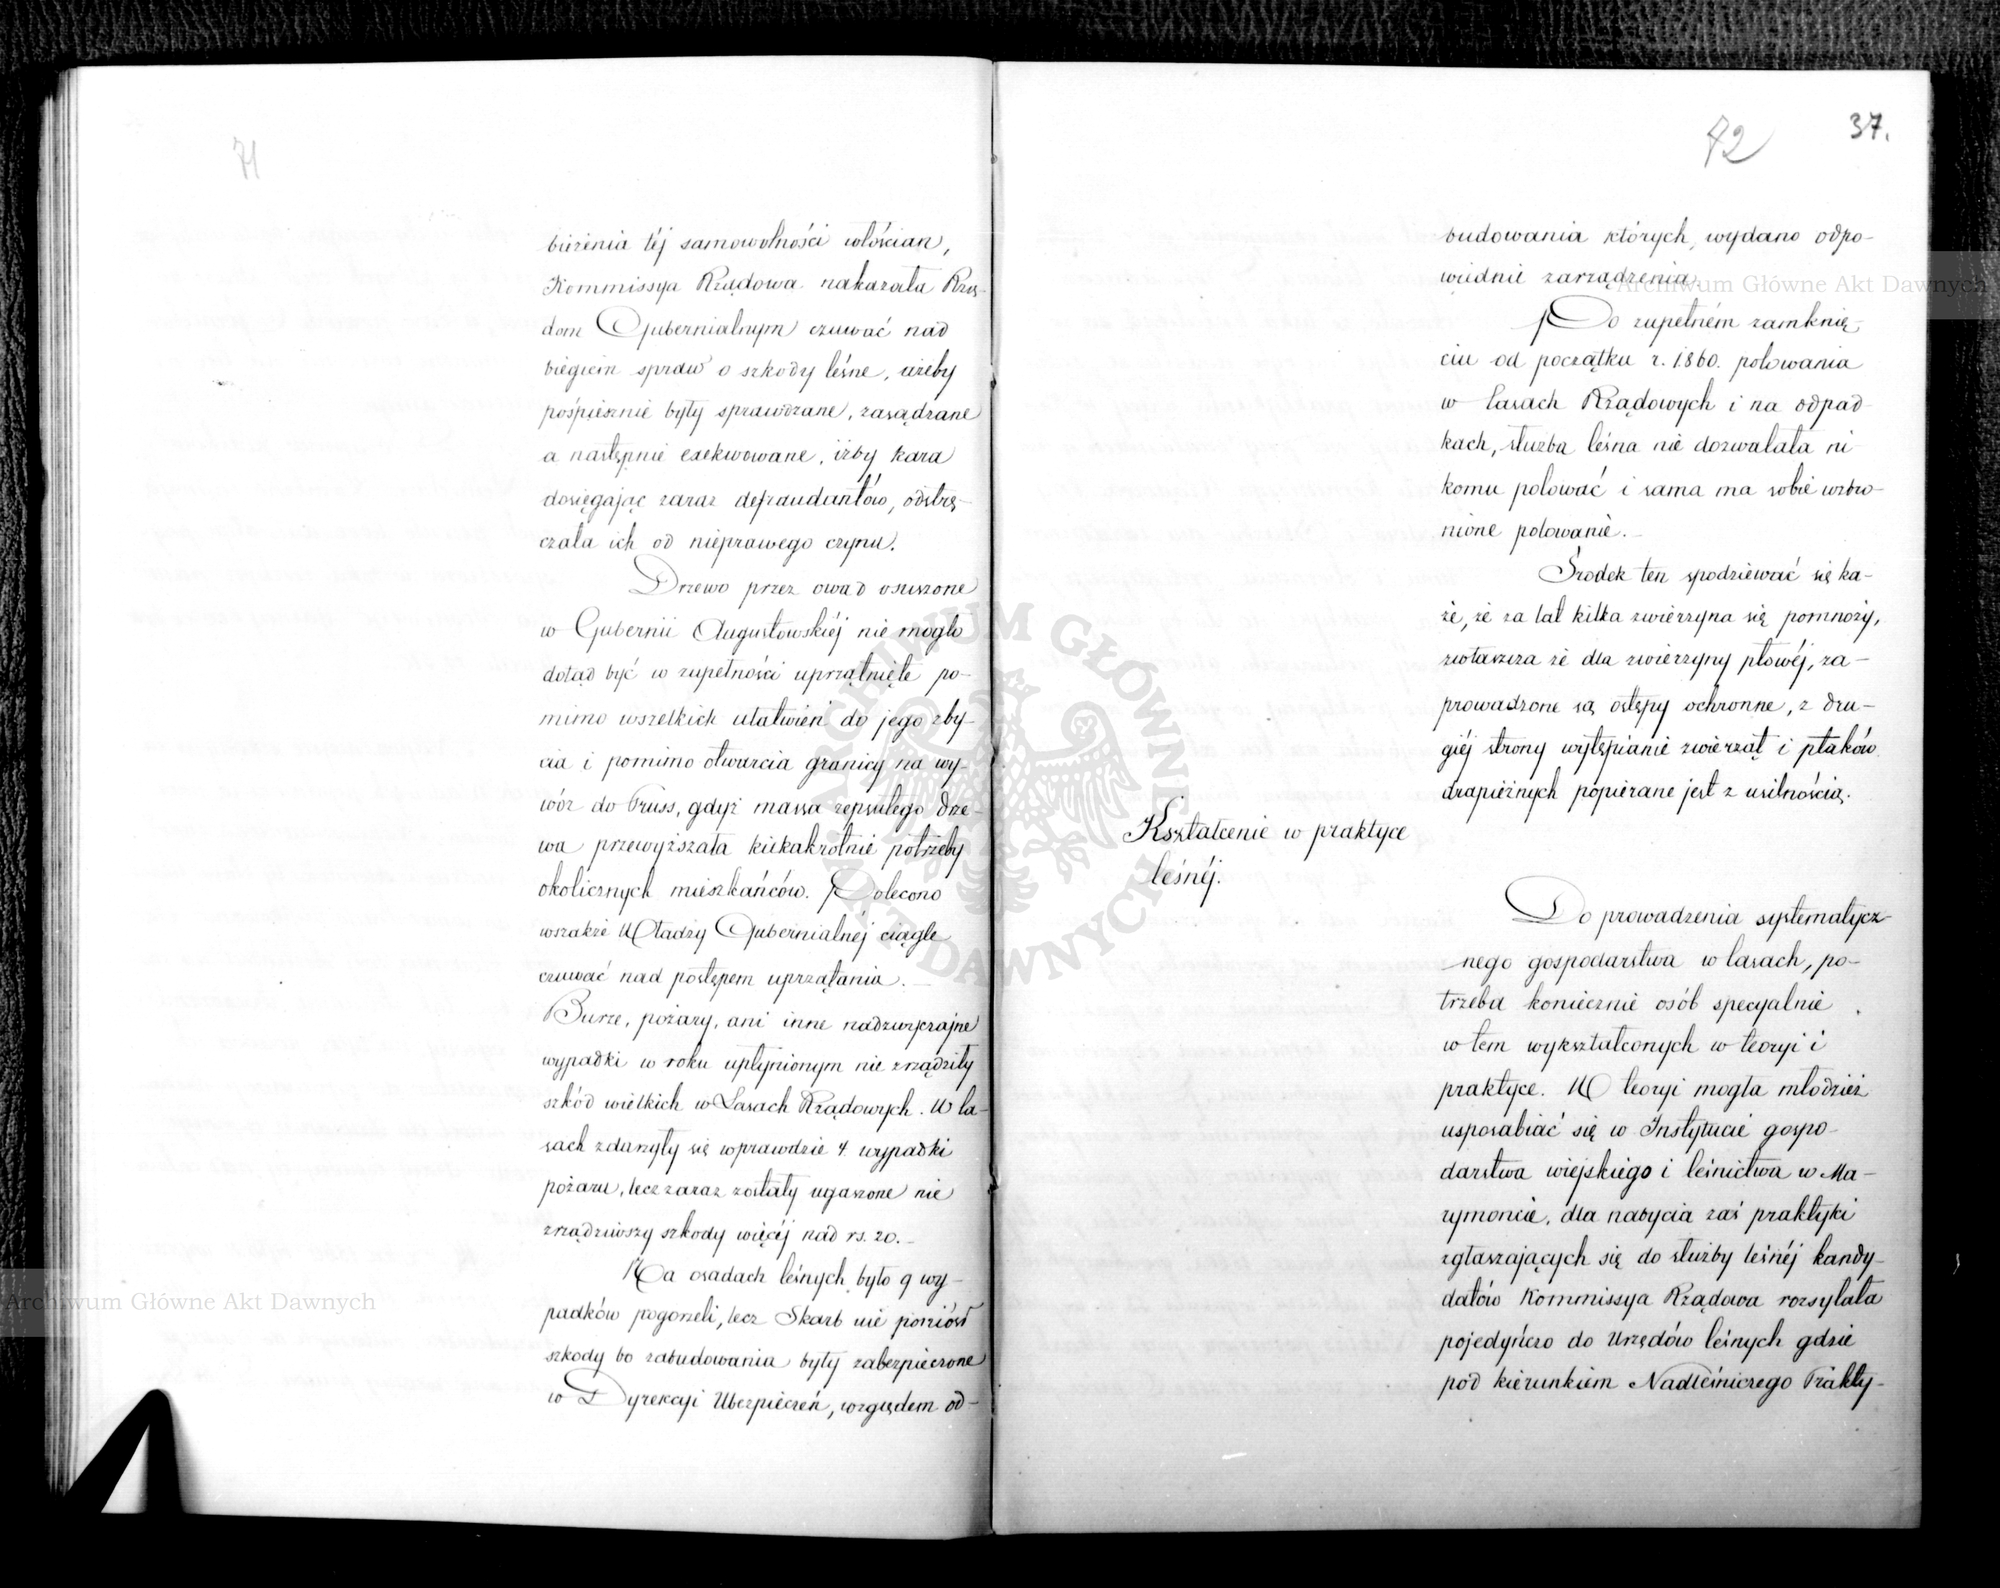 71
bieżenia téj samowolności włościan,
Kommissya Rządowa nakazała Rzą-
dom Gubernialnym czuwać nad
biegiem spraw o szkody leśne, iżeby
pośpiesznie były sprawdzane, zasądzane
a następnie exekwowane, iżby kara
dosięgając zaraz defraudantów, odstrę-
czała ich od nieprawego czynu.
Drzewo przez owad osuszone
w Gubernii Augustowskiéj nie mogło
dotąd być w zupełności uprzątnięte po-
mimo wszelkich ułatwień do jego zby-
cia i pomimo otwarcia granicy na wy-
wóz do Pruss, gdyż massa zepsutego drze-
wa przewyższała kilkakrotnie potrzeby
okolicznych mieszkańców. Polecono
wszakże Władzy Gubernialnéj ciągle
czuwać nad postępem uprzątania. –
Burze, pożary, ani inne nadzwyczajne
wypadki w roku upłynionym nie zrządziły
szkód wielkich w Lasach Rządowych. W la-
sach zdarzyły się wprawdzie 4. wypadki
pożaru, lecz zaraz zostały ugaszone nie
zrządziwszy szkody więcéj nad rs. 20. –
Na osadach leśnych było 9 wy-
padków pogorzeli, lecz Skarb nie poniósł
szkody bo zabudowania były zabezpieczone
w Dyrekcyi Ubezpieczeń, względem od-
72
37.
budowania których, wydano odpo-
wiednie zarządzenia.
Po zupełném zamknię-
ciu od początku r. 1860. polowania
w lasach Rządowych i na odpad-
kach, służba leśna nie dozwalała ni-
komu polować i sama ma sobie wzbro-
nione polowanie. –
Środek ten spodziewać się ka-
że, że za lat kilka zwierzyna się pomnoży,
zwłaszcza że dla zwierzyny płowéj, za-
prowadzone są ostępy ochronne, z dru-
giéj strony wytępianie zwierząt i ptaków
drapieżnych popierane jest z usilnością.
Kształcenie w praktyce
leśnéj.
Do prowadzenia systematycz-
nego gospodarstwa w lasach, po-
trzeba koniecznie osób specyalnie
w tem wykształconych w teoryi i
praktyce. W teoryi mogła młodzież
usposabiać się w Instytucie gospo-
darstwa wiejskiego i leśnictwa w Ma-
rymoncie, dla nabycia zaś praktyki
zgłaszających się do służby leśnéj kandy-
datów Kommissya Rządowa rozsyłała
pojedyńczo do Urzędów leśnych gdzie
pod kierunkiem Nadleśniczego Prakty-
Archiwum Główne Akt Dawnych
Archiwum Główne Akt Dawnych
ARCHIWUM GŁÓWNE AKT DAWNYCH